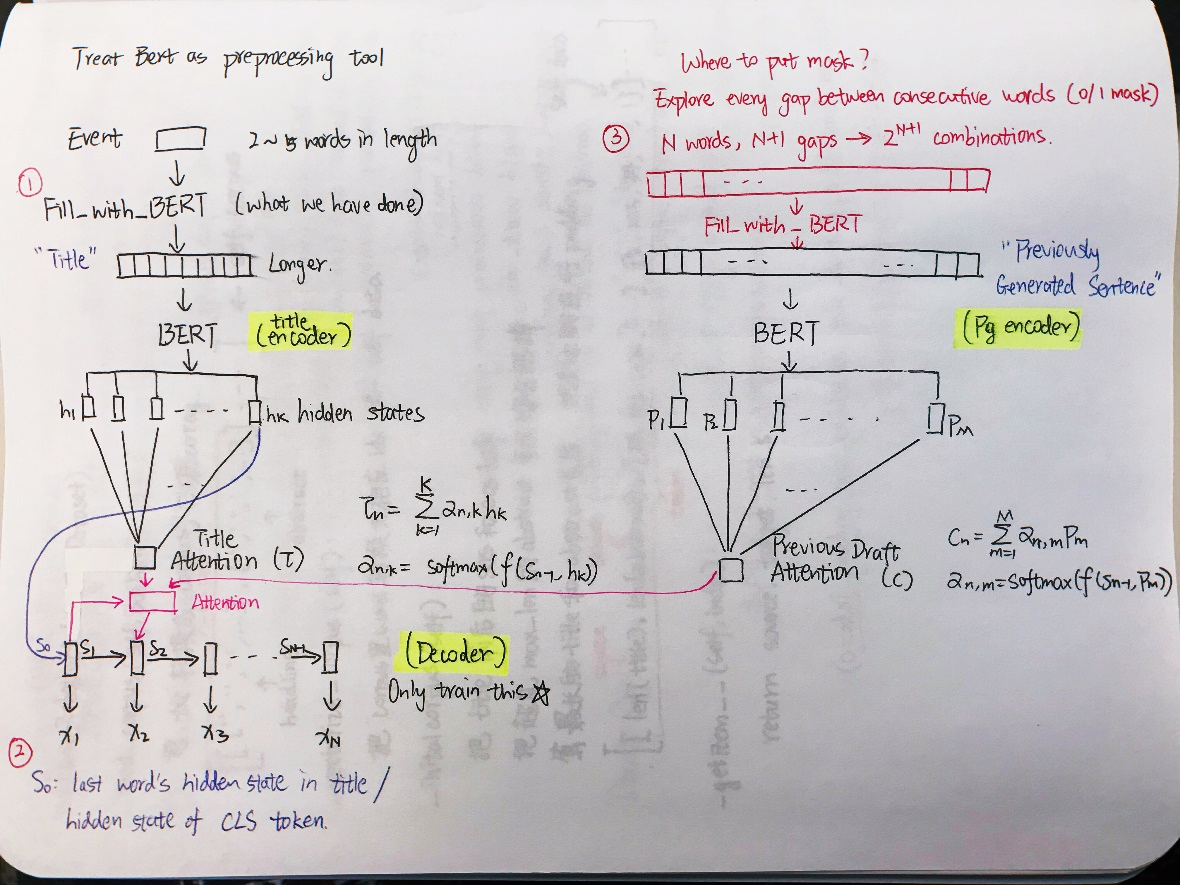 Treat Bert as preprocessing tool
Event
2~5 words in length
①
Fill_with_BERT (what we have done)
"Title"
Longer.
BERT
title
(encoder)
h1
hk hidden states
τn = Σ k=1 K αn,k hk
Title
Attention (T)
αn,k = softmax(f(Sn-1, hk))
Attention
S0
S1
S2
SN-1
(Decoder)
Only train this ☆
x1 x2 x3 xN
②
S0: last word's hidden state in title /
hidden state of CLS token.
Where to put mask?
Explore every gap between consecutive words (0/1 mask)
③ N words, N+1 gaps → 2^N+1 combinations.
Fill_with_BERT
"Previously
Generated Sentence"
BERT
(Pg encoder)
P1 P2 PM
Previous Draft
Attention (C)
Cn = Σ m=1 M αn,m Pm
αn,m = softmax(f(Sn-1, Pm))